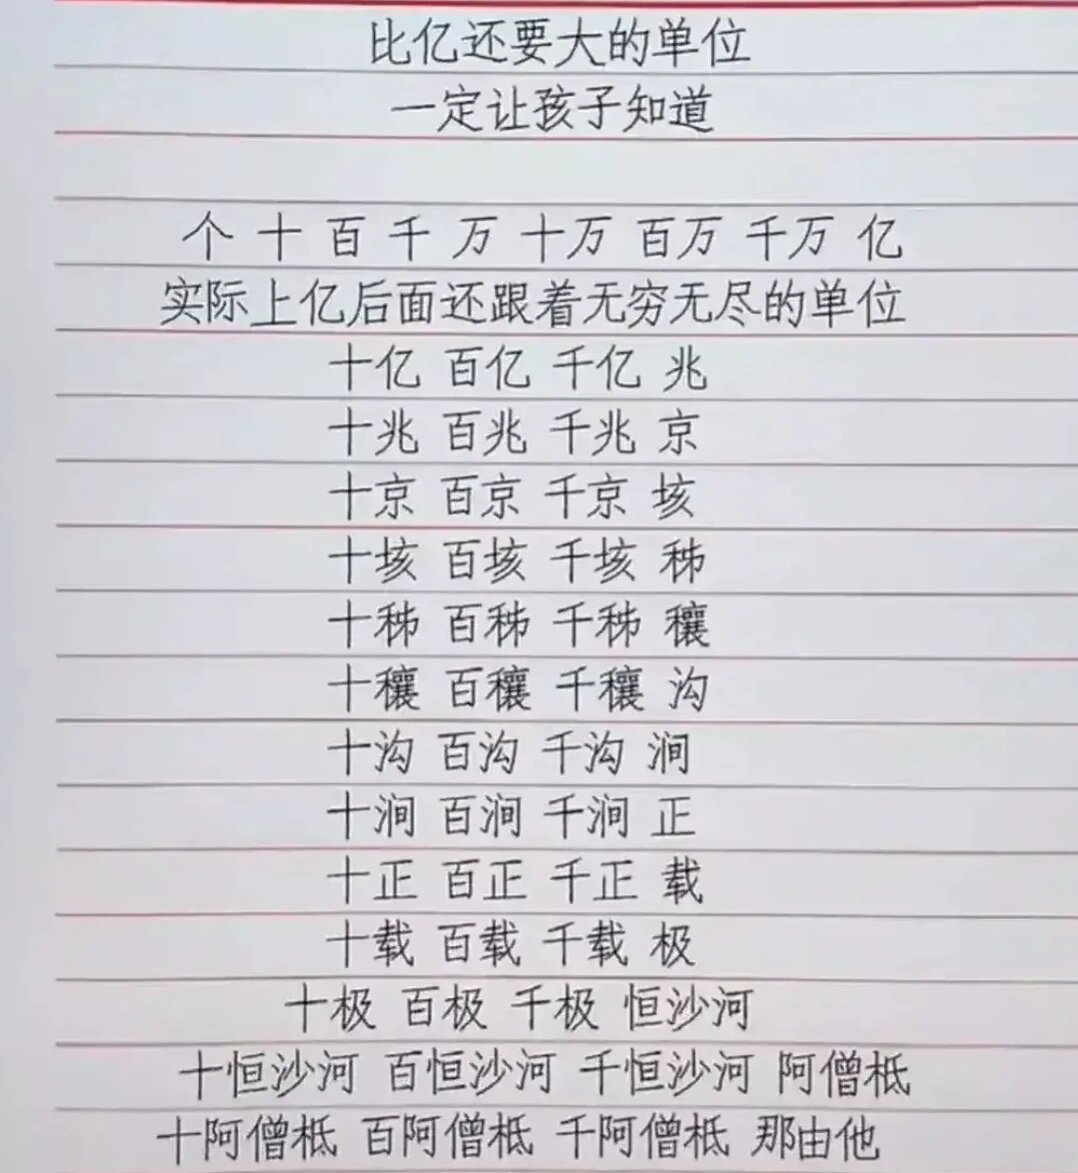 比亿还要大的单位
一定让孩子知道
个 十 百 千 万 十万 百万 千万 亿
实际上亿后面还跟着无穷无尽的单位
十亿 百亿 千亿 兆
十兆 百兆 千兆 京
十京 百京 千京 垓
十垓 百垓 千垓 秭
十秭 百秭 千秭 穰
十穰 百穰 千穰 沟
十沟 百沟 千沟 涧
十涧 百涧 千涧 正
十正 百正 千正 载
十载 百载 千载 极
十极 百极 千极 恒沙河
十恒沙河 百恒沙河 千恒沙河 阿僧柢
十阿僧柢 百阿僧柢 千阿僧柢 那由他